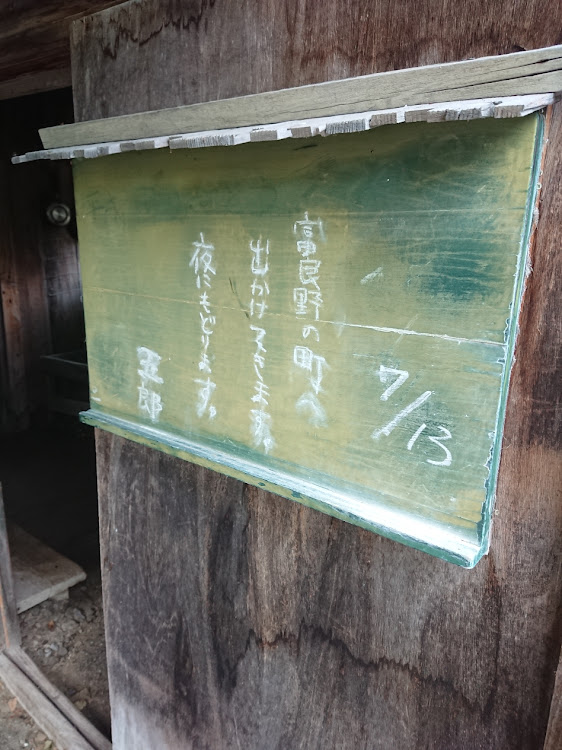 7/13
富良野の町へ
出かけてきます。
夜にもどります。
五郎